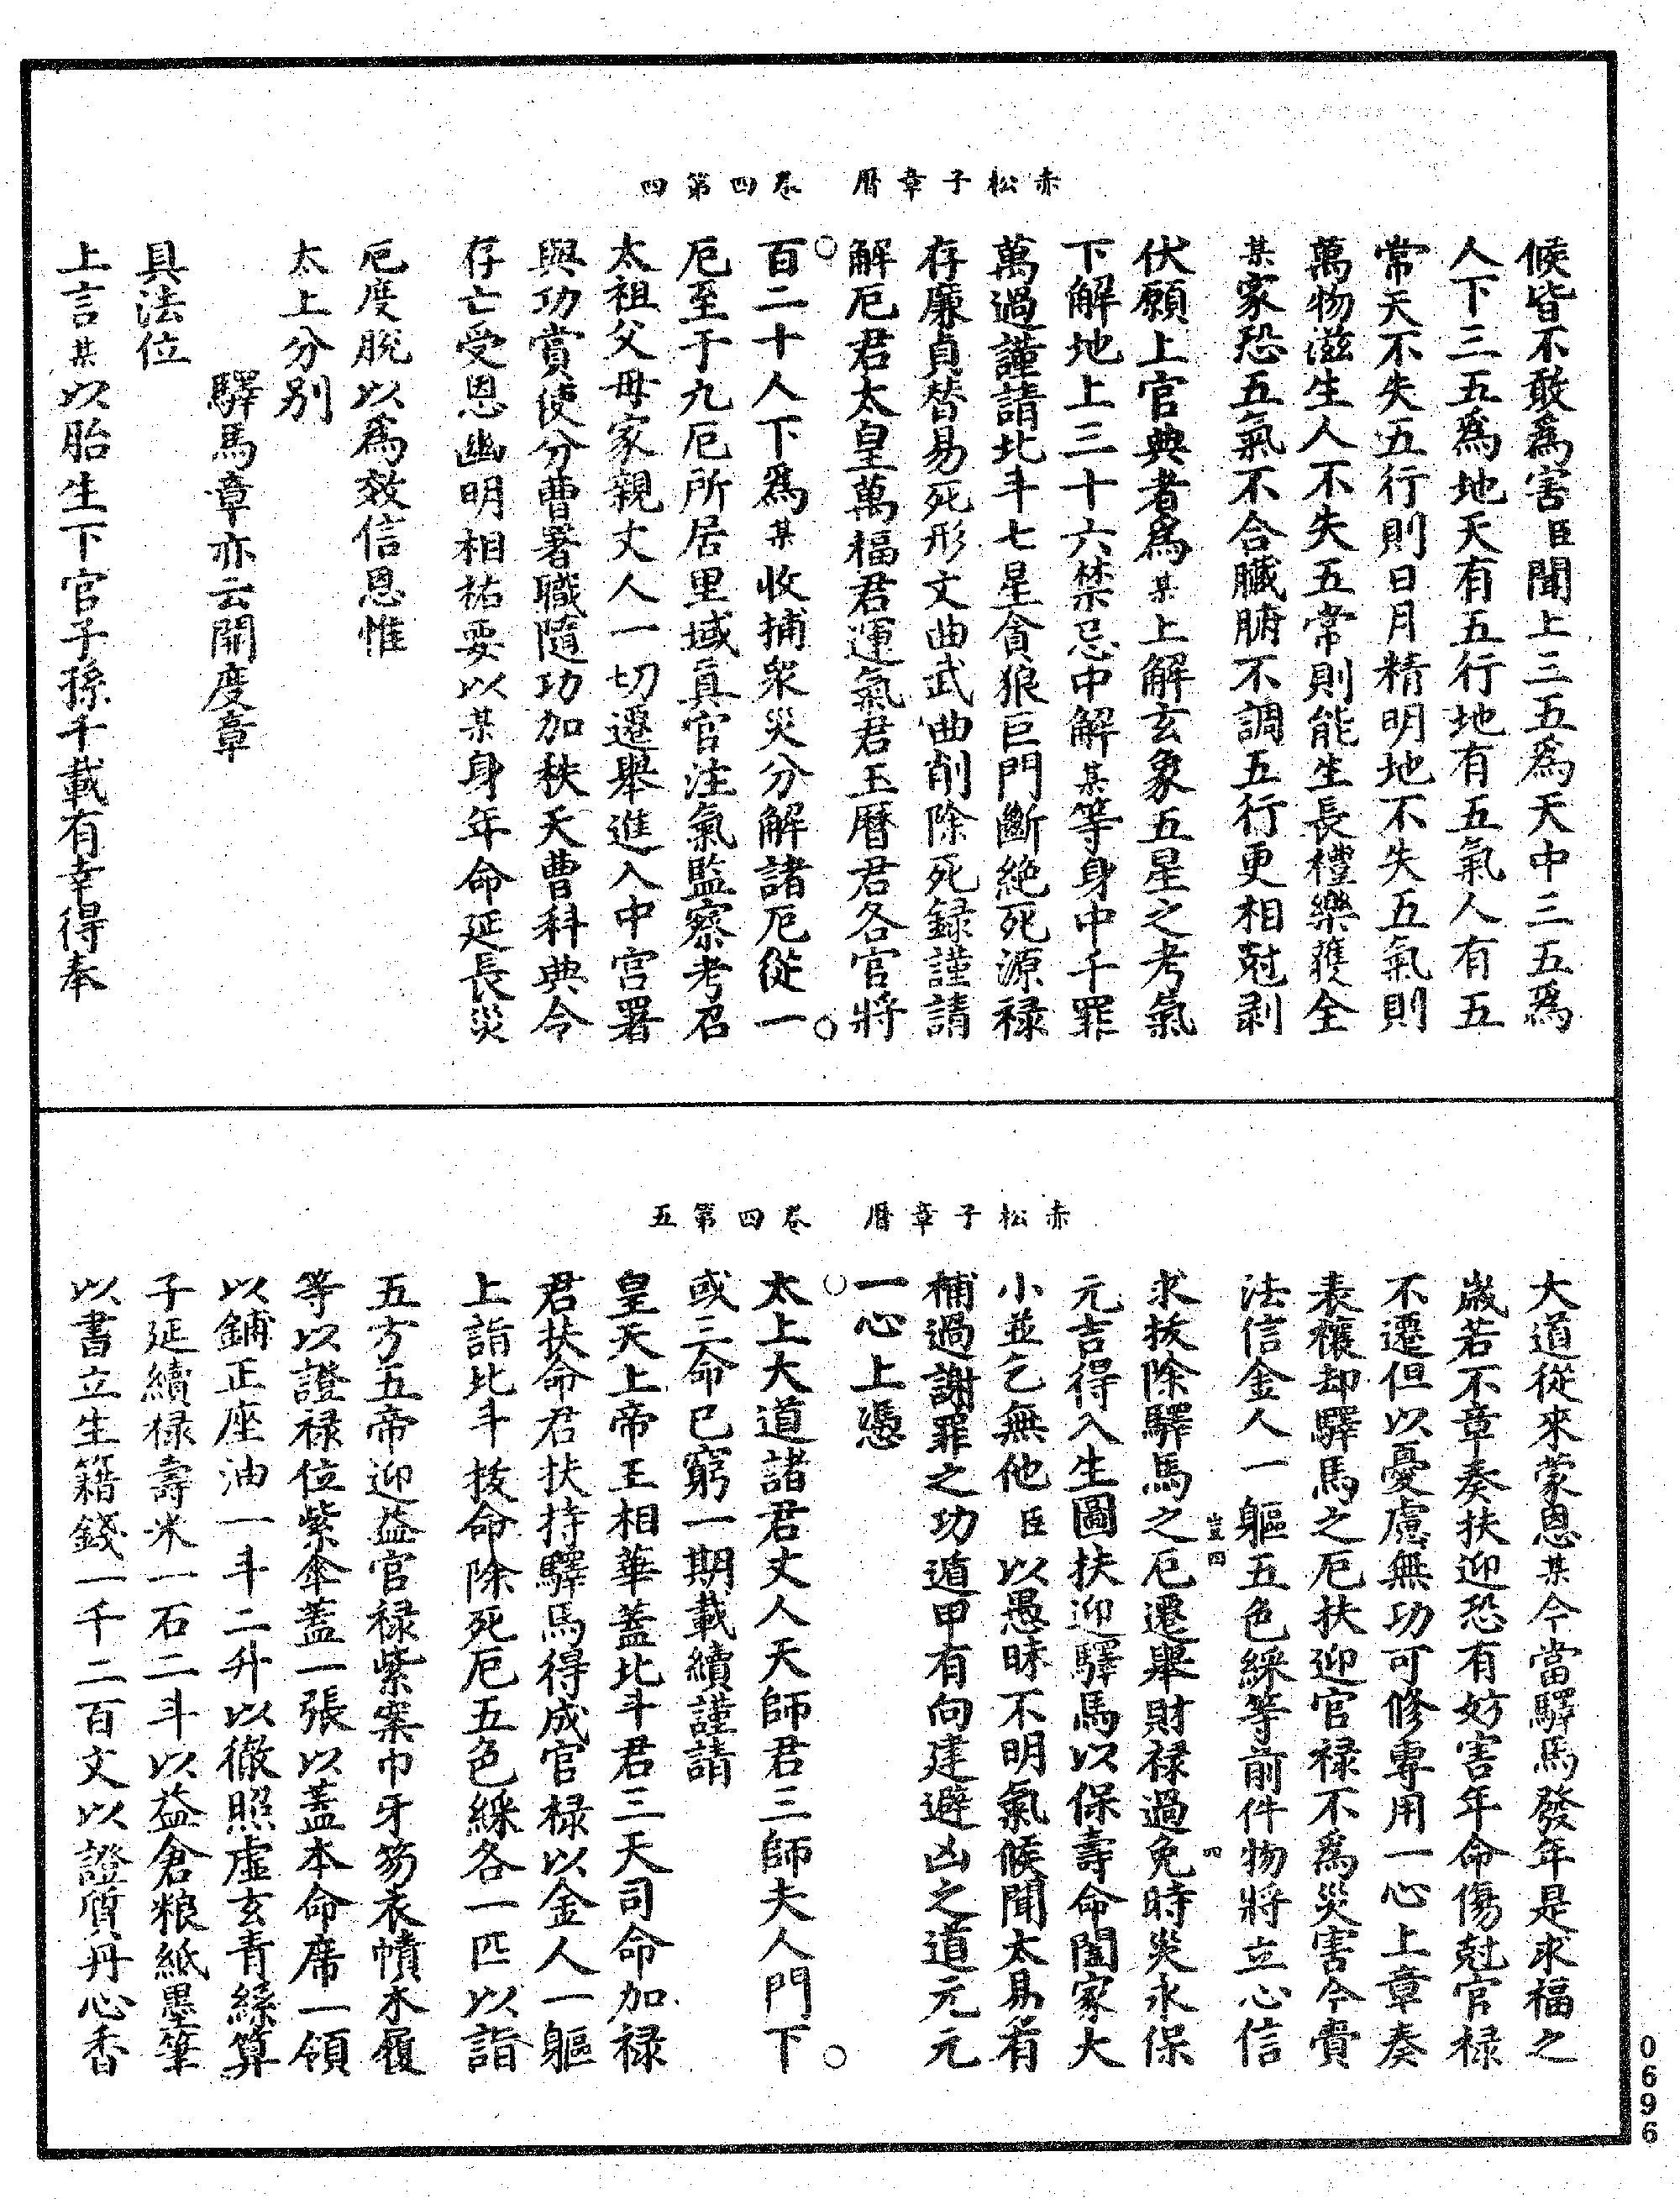 赤松子章曆　卷四第四
候皆不敢爲害臣聞上三五爲天中三五爲
人下三五爲地天有五行地有五氣人有五
常天不失五行則日月精明地不失五氣則
萬物滋生人不失五常則能生長禮樂獲全
某家恐五氣不合臟腑不調五行更相尅剥
伏願上官典者爲某上解玄象五星之考氣
下解地上三十六禁忌中解某等身中千罪
萬過謹請北斗七星貪狼巨門斷絕死源禄
存廉貞替易死形文曲武曲削除死録謹請
解厄君太皇萬福君運氣君玉曆君各官將
百二十人下爲某收捕衆災分解諸厄從一
厄至于九厄所居里域真官注氣監察考召
太祖父母家親丈人一切遷舉進入中宫署
與功賞使分曹署職隨功加秩天曹科典令
存亡受恩幽明相祐要以某身年命延長災
厄度脫以爲效信恩惟
太上分别
驛馬章亦云開度章
具法位
上言某以胎生下官子孫千載有幸得奉
赤松子章曆　卷四第五
大道從來蒙恩某今當驛馬發年是求福之
歲若不章奏扶迎恐有妨害年命傷尅官禄
不遷但以憂慮無功可修專用一心上章奏
表禳却驛馬之厄扶迎官禄不爲災害今賫
法信金人一軀五色綵等前件物將立心信
豈四
四
求拔除驛馬之厄遷舉財禄過免時災永保
元吉得入生圖扶迎驛馬以保壽命闔家大
小並乞無他臣以愚昧不明氣候聞太易有
補過謝罪之功遁甲有向建避凶之道元元
一心上憑
太上大道諸君丈人天師君三師夫人門下
或三命已窮一期載續謹請
皇天上帝王相華蓋北斗君三天司命加禄
君扶命君扶持驛馬得成官禄以金人一軀
上詣北斗拔命除死厄五色綵各一匹以詣
五方五帝迎益官禄紫案巾牙笏衣幘木履
等以證禄位紫傘蓋一張以蓋本命席一領
以鋪正座油一斗二升以徹照虛玄青絲算
子延續禄壽米一石二斗以益倉粮紙墨筆
以書立生籍錢一千二百文以證質丹心香
0696